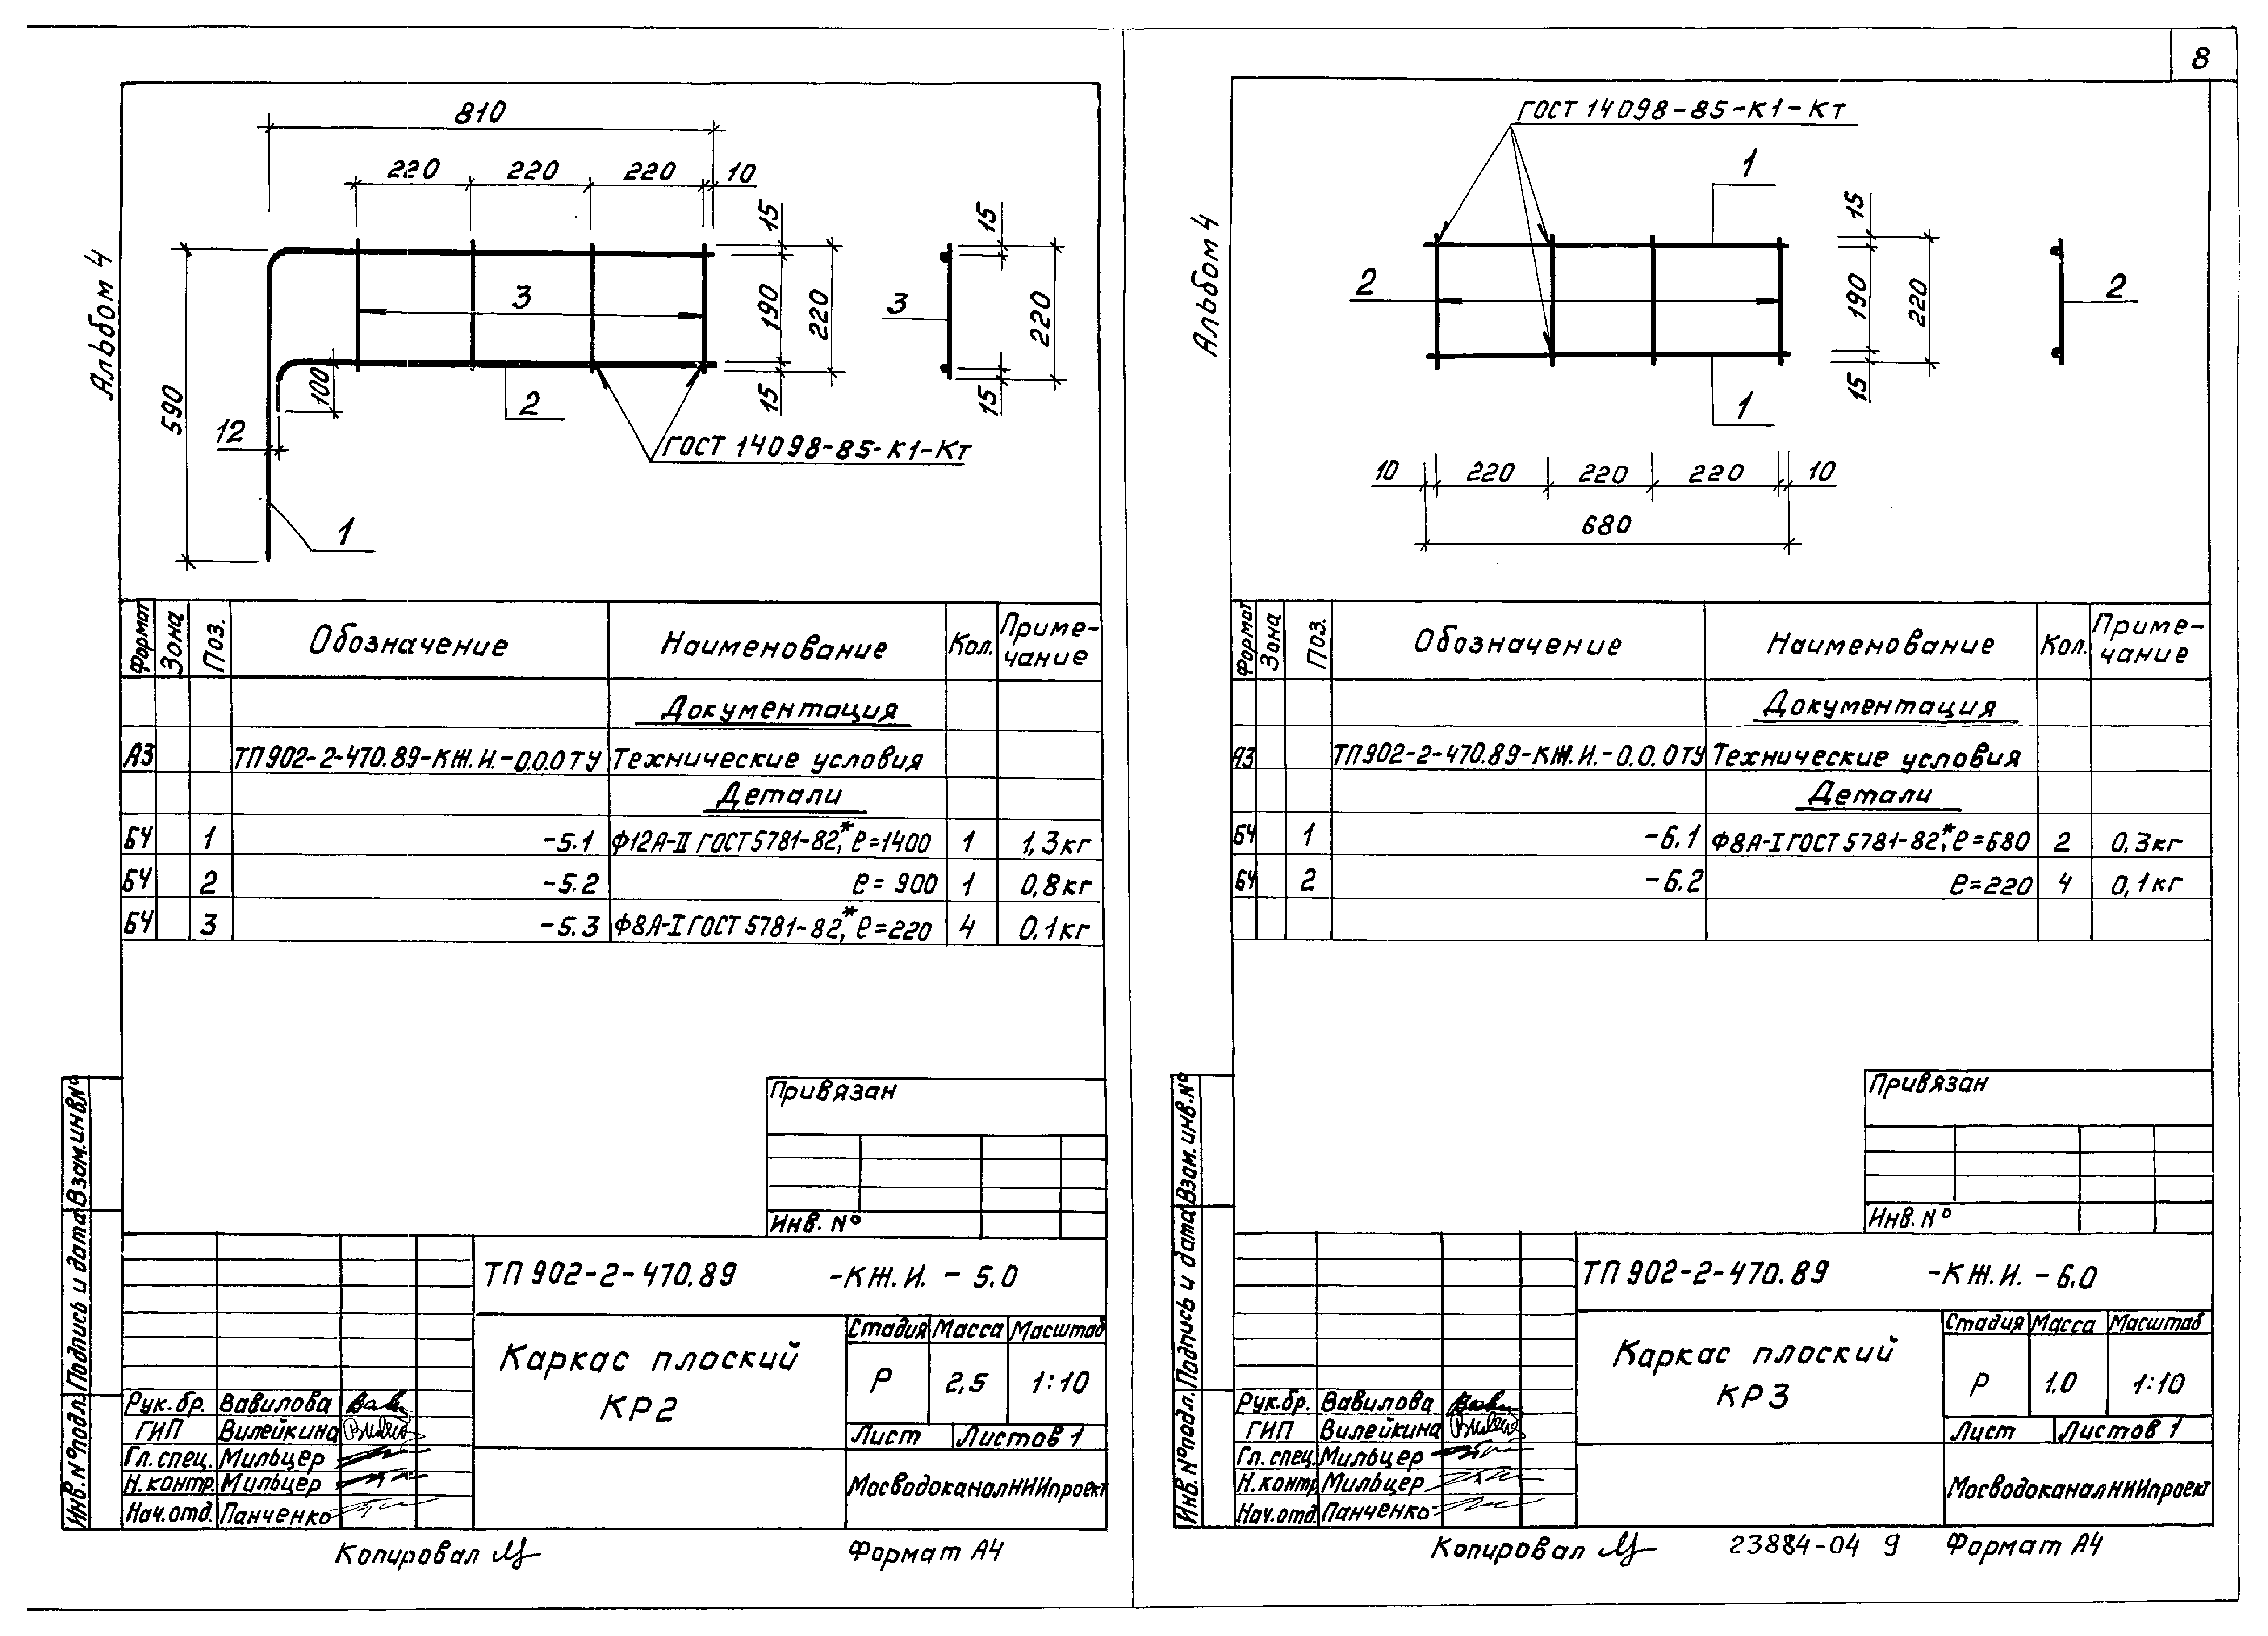 8
Альбом 4
810
220 220 220 10
15
190
220
15
15
220
15
3
3
590
100
12
2
1
ГОСТ 14098-85-К1-Кт
Формат Зона Поз. Обозначение Наименование Кол. Приме-
чание
Документация
А3 ТП902-2-470.89-КЖ.И.-0.0.0ТУ Технические условия
Детали
БЧ 1 -5.1 Ф12А-II ГОСТ 5781-82*, ℓ=1400 1 1,3кг
БЧ 2 -5.2 ℓ= 900 1 0,8кг
БЧ 3 -5.3 Ф8А-I ГОСТ 5781-82*, ℓ=220 4 0,1кг
Привязан
Инв. №
Взам.инв.№
Подпись и дата
Инв.№подл.
ТП 902-2-470.89 -КЖ.И. - 5.0
Каркас плоский
КР2
Стадия Масса Масштаб
Р 2,5 1:10
Лист Листов 1
МосводоканалНИИпроект
Рук.бр. Вавилова
ГИП Вилейкина
Гл.спец. Мильцер
Н.контр. Мильцер
Нач.отд. Панченко
Копировал
Формат А4
Альбом 4
ГОСТ 14098-85-К1-Кт
1
2
1
15
190
220
15
2
10 220 220 220 10
680
Формат Зона Поз. Обозначение Наименование Кол. Приме-
чание
Документация
А3 ТП902-2-470.89-КЖ.И.-0.0.0ТУ Технические условия
Детали
БЧ 1 -6.1 Ф8А-I ГОСТ 5781-82*, ℓ=680 2 0,3кг
БЧ 2 -6.2 ℓ=220 4 0,1кг
Привязан
Инв. №
Взам.инв.№
Подпись и дата
Инв.№подл.
ТП 902-2-470.89 -КЖ.И. -6.0
Каркас плоский
КР3
Стадия Масса Масштаб
Р 1,0 1:10
Лист Листов 1
МосводоканалНИИпроект
Рук.бр. Вавилова
ГИП Вилейкина
Гл.спец. Мильцер
Н.контр Мильцер
Нач.отд. Панченко
Копировал
23884-04 9
Формат А4